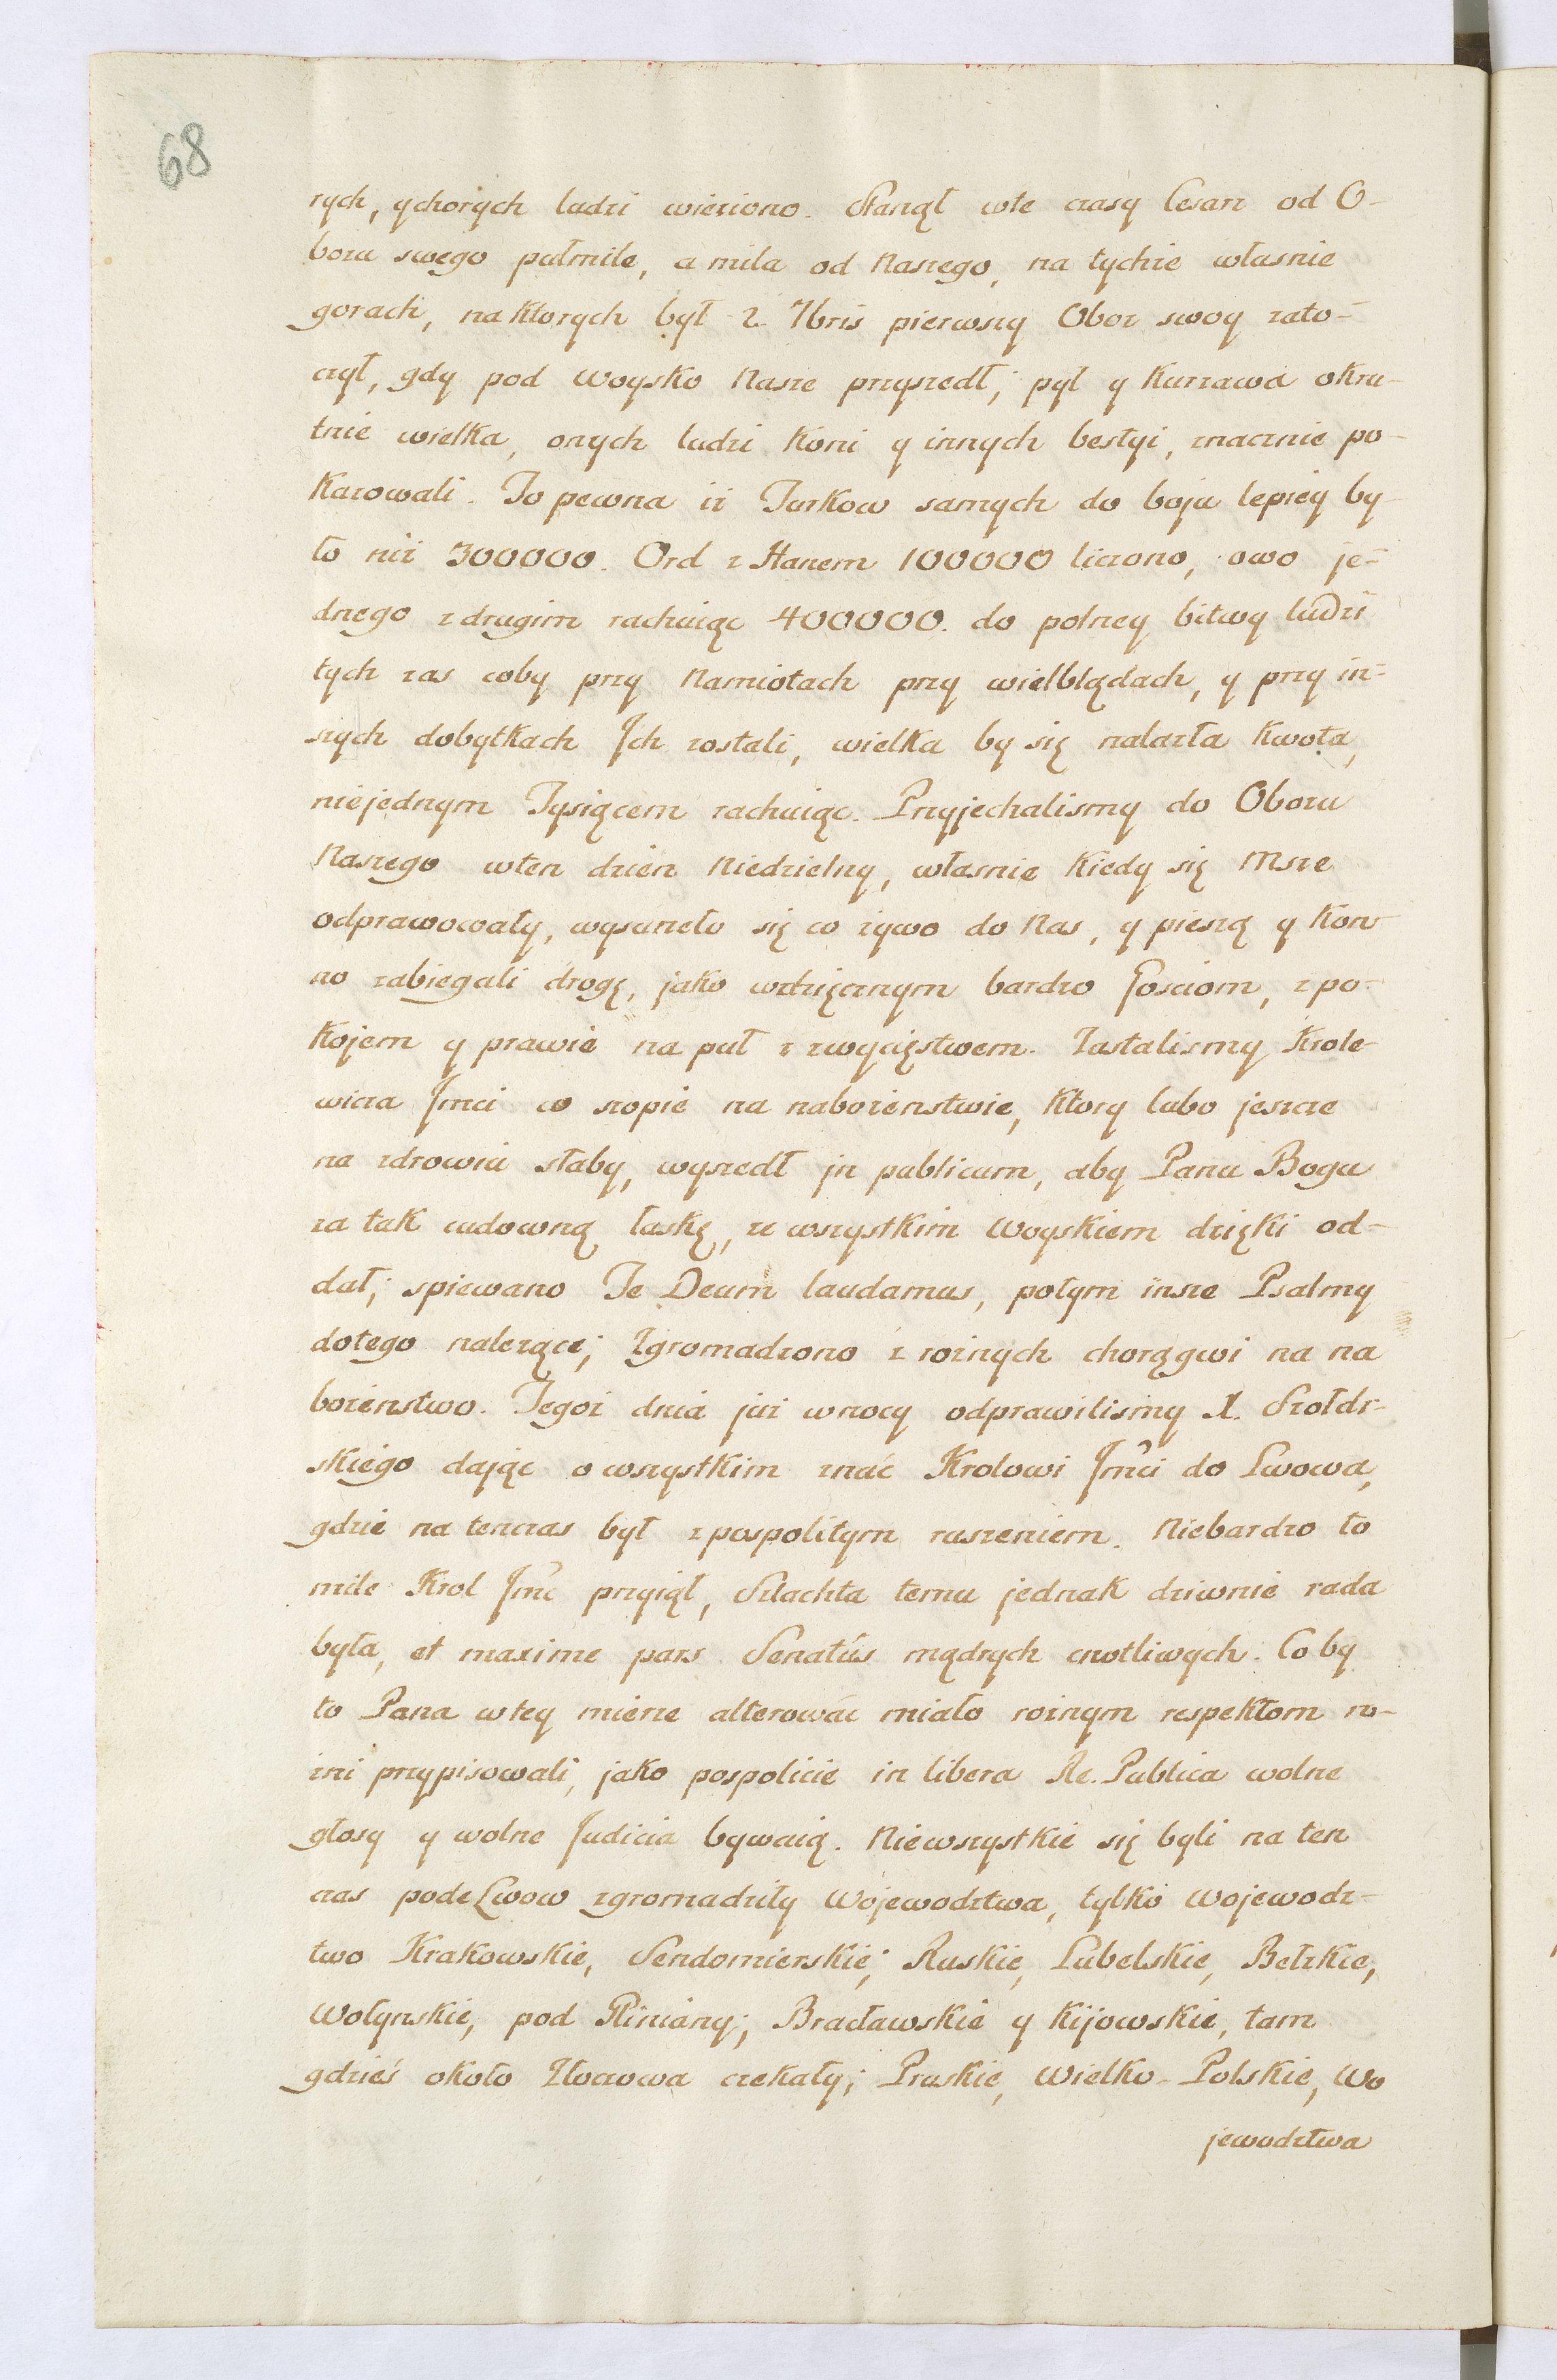 68
rych, ychorych ludzi wieziono. Stanął wte czasy Cesarz od O-
bozu swego pułmile, a mila od Naszego, na tychże własnie
gorach, na Ktorych był 2. 7bris pierwszy Oboz swoy zato-
czył, gdy pod Woysko Nasze przyszedł; pył y Kurzawa okru-
tnie wielka, onych ludzi Koni y innych bestyi, znacznie po-
Kazowali. To pewna iż Turkow samych do boju lepiey by-
ło niż 300000. Ord z Hanem 100000 liczono, owo je-
dnego z drugim rachuiąc 400000. do polney bitwy ludzi
tych zas coby przy Namiotach przy wielblądach, y przy in-
szych dobytkach Jch zostali, wielka by się nalazła Kwota,
niejednym Tysiącem rachuiąc. Przyjechalismy do Obozu
Naszego wten dzien Niedzielny, własnie Kiedy się Msze
odprawowały, wysuneło się co żywo do Nas, y pieszą y Kon
no zabiegali drogę, jako wdzięcznym bardzo Gosciom, z po-
Kojem y prawie na puł z zwycięstwem. Zastalismy Krole-
wicza Jmci co szopie na nabożenstwie, Ktory lubo jeszcze
na zdrowiu słaby, wyszedł jn publicum, aby Panu Bogu
za tak cudowną łaskę, ze wszystkim Woyskiem dzięki od-
dał; spiewano Te Deum laudamus, potym insze Psalmy
dotego nalezące; Zgromadzono z rożnych chorągwi na na
bożenstwo. Tegoż dnia już w nocy odprawilismy X. Szołdr-
skiego dając o wszystkim znać Krolowi Jmci do Lwowa,
gdzie na tenczas był z pospolitym ruszeniem. Niebardzo to
mile Krol Jmc przyiął, Szlachta temu jednak dziwnie rada
była, et maxime pars Senatûs mądrych cnotliwych. Co by
to Pana w tey mierze alterować miało rożnym respektom ro-
żni przypisowali, jako pospolicie in libera Re. Publica wolne
głosy y wolne Judicia bywaią. Niewszystkie się byli na ten
czas pode Lwow zgromadziły Wojewodztwa, tylko Wojewodz-
two Krakowskie, Sendomierskie; Ruskie, Lubelskie, Bełzkie,
Wołynskie, pod Gliniany; Bracławskie y Kijowskie, tam
gdzieś około Złoczowa czekały; Pruskie, Wielko-Polskie, Wo
jewodztwa